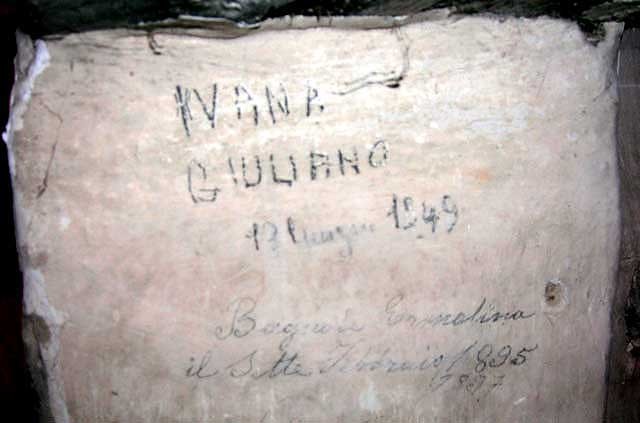 IVANA
GIULIANO
13 Giugno 1949
Bagnoli Ermelina
il Sette Febbraio 1895
1897